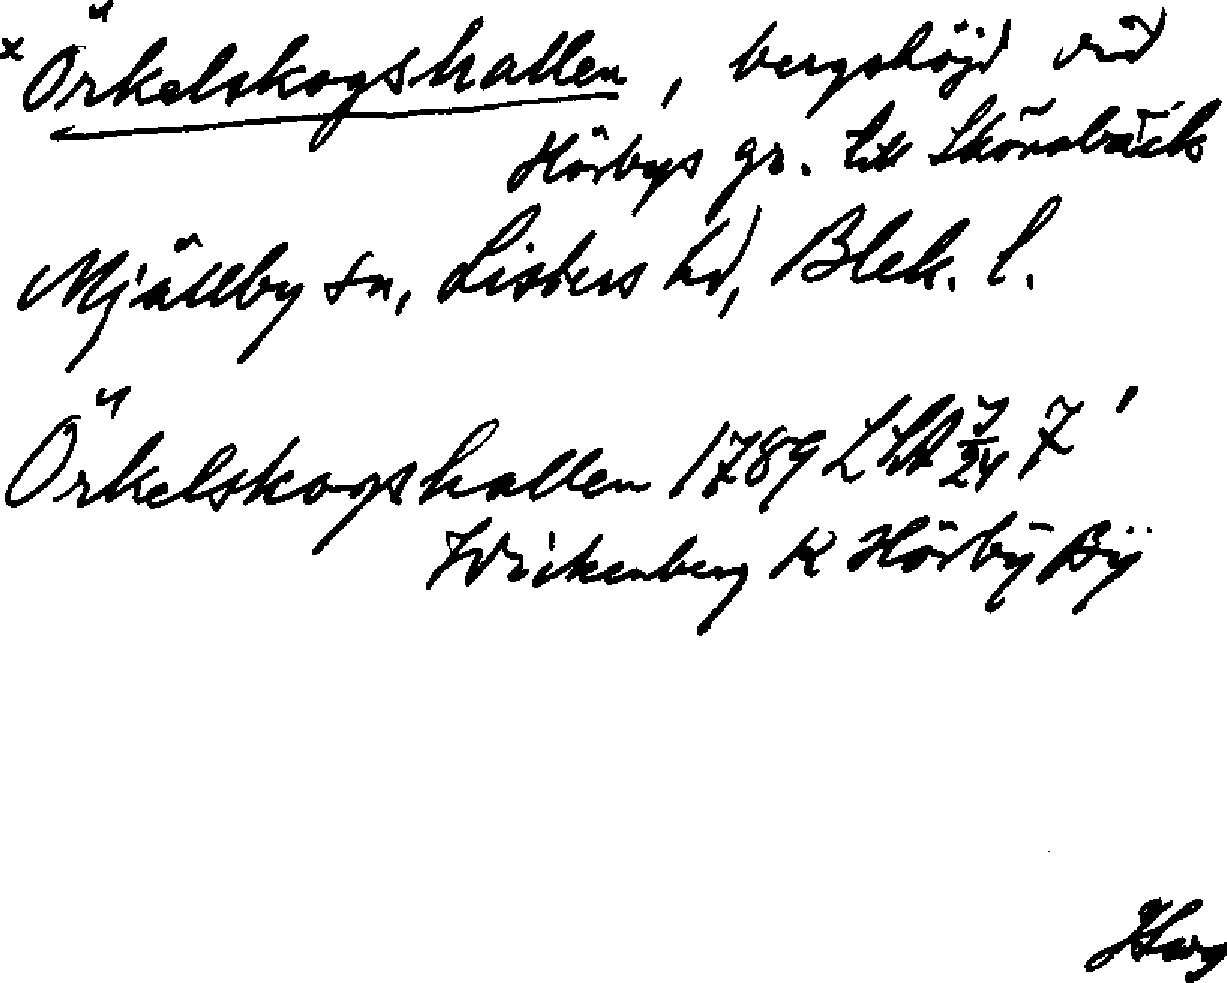 × Örkelskogshallen, bergshöjd vid
Hörbys gr. till Skönabäck
Mjällby sn, Listers hd, Blek. l.
Örkelskogshallen 1789 LSA 7/24 7'
Wickenberg K Hörby By